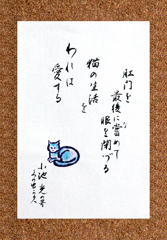 肛門を
最後に嘗めて
眼を閉づる
猫の生活を
われは愛する
小池光